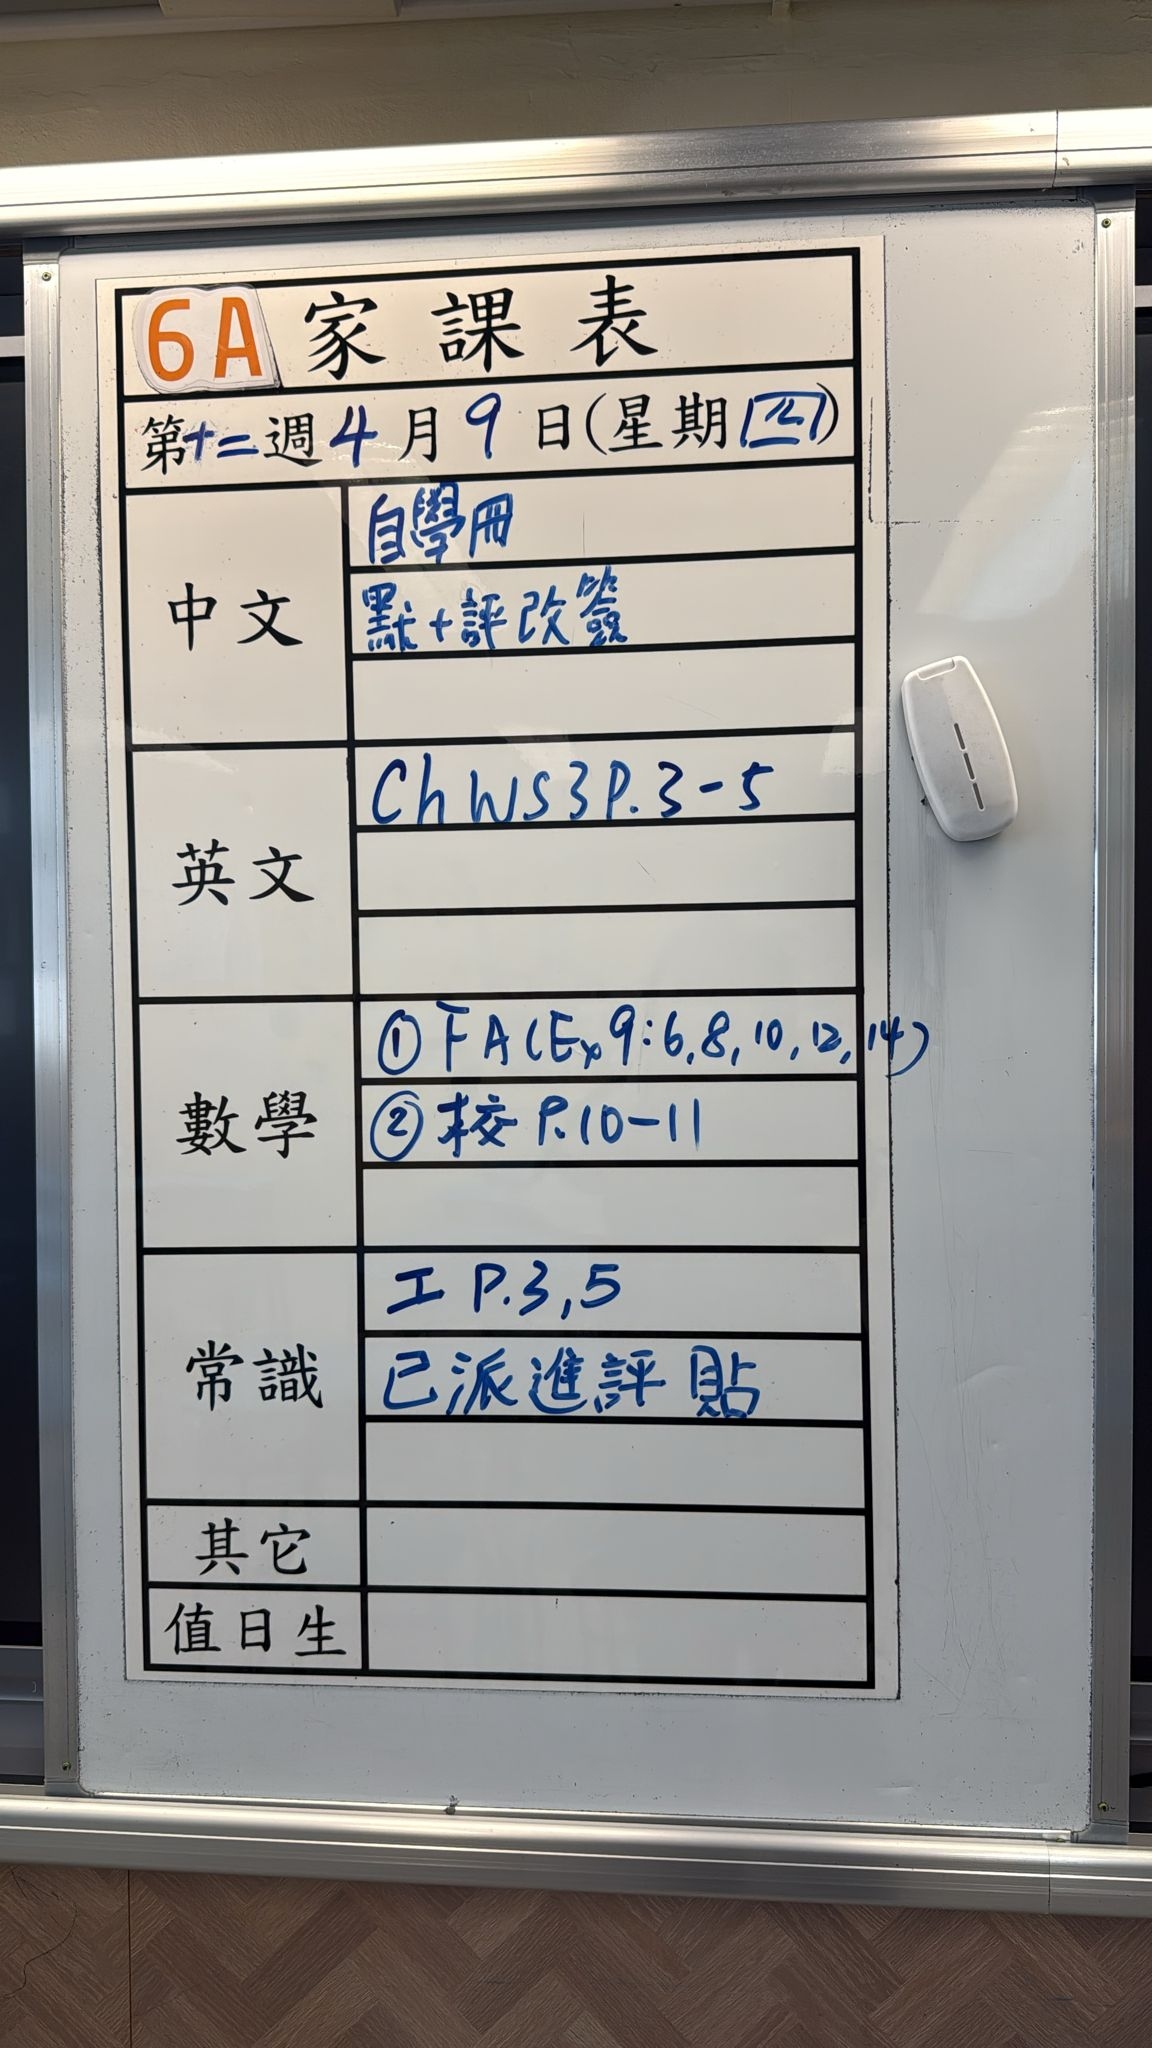 6A 家課表
第十二週4月9日(星期四)
中文
自學冊
默+評改簽
英文
Ch WS3 P.3-5
數學
① FA (Ex 9: 6, 8, 10, 12, 14)
② 校 P.10-11
常識
工 P.3, 5
已派進評 貼
其它
值日生